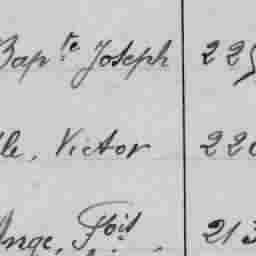 Bapte Joseph 225
lle, Victor 220
Ange, Fois 213